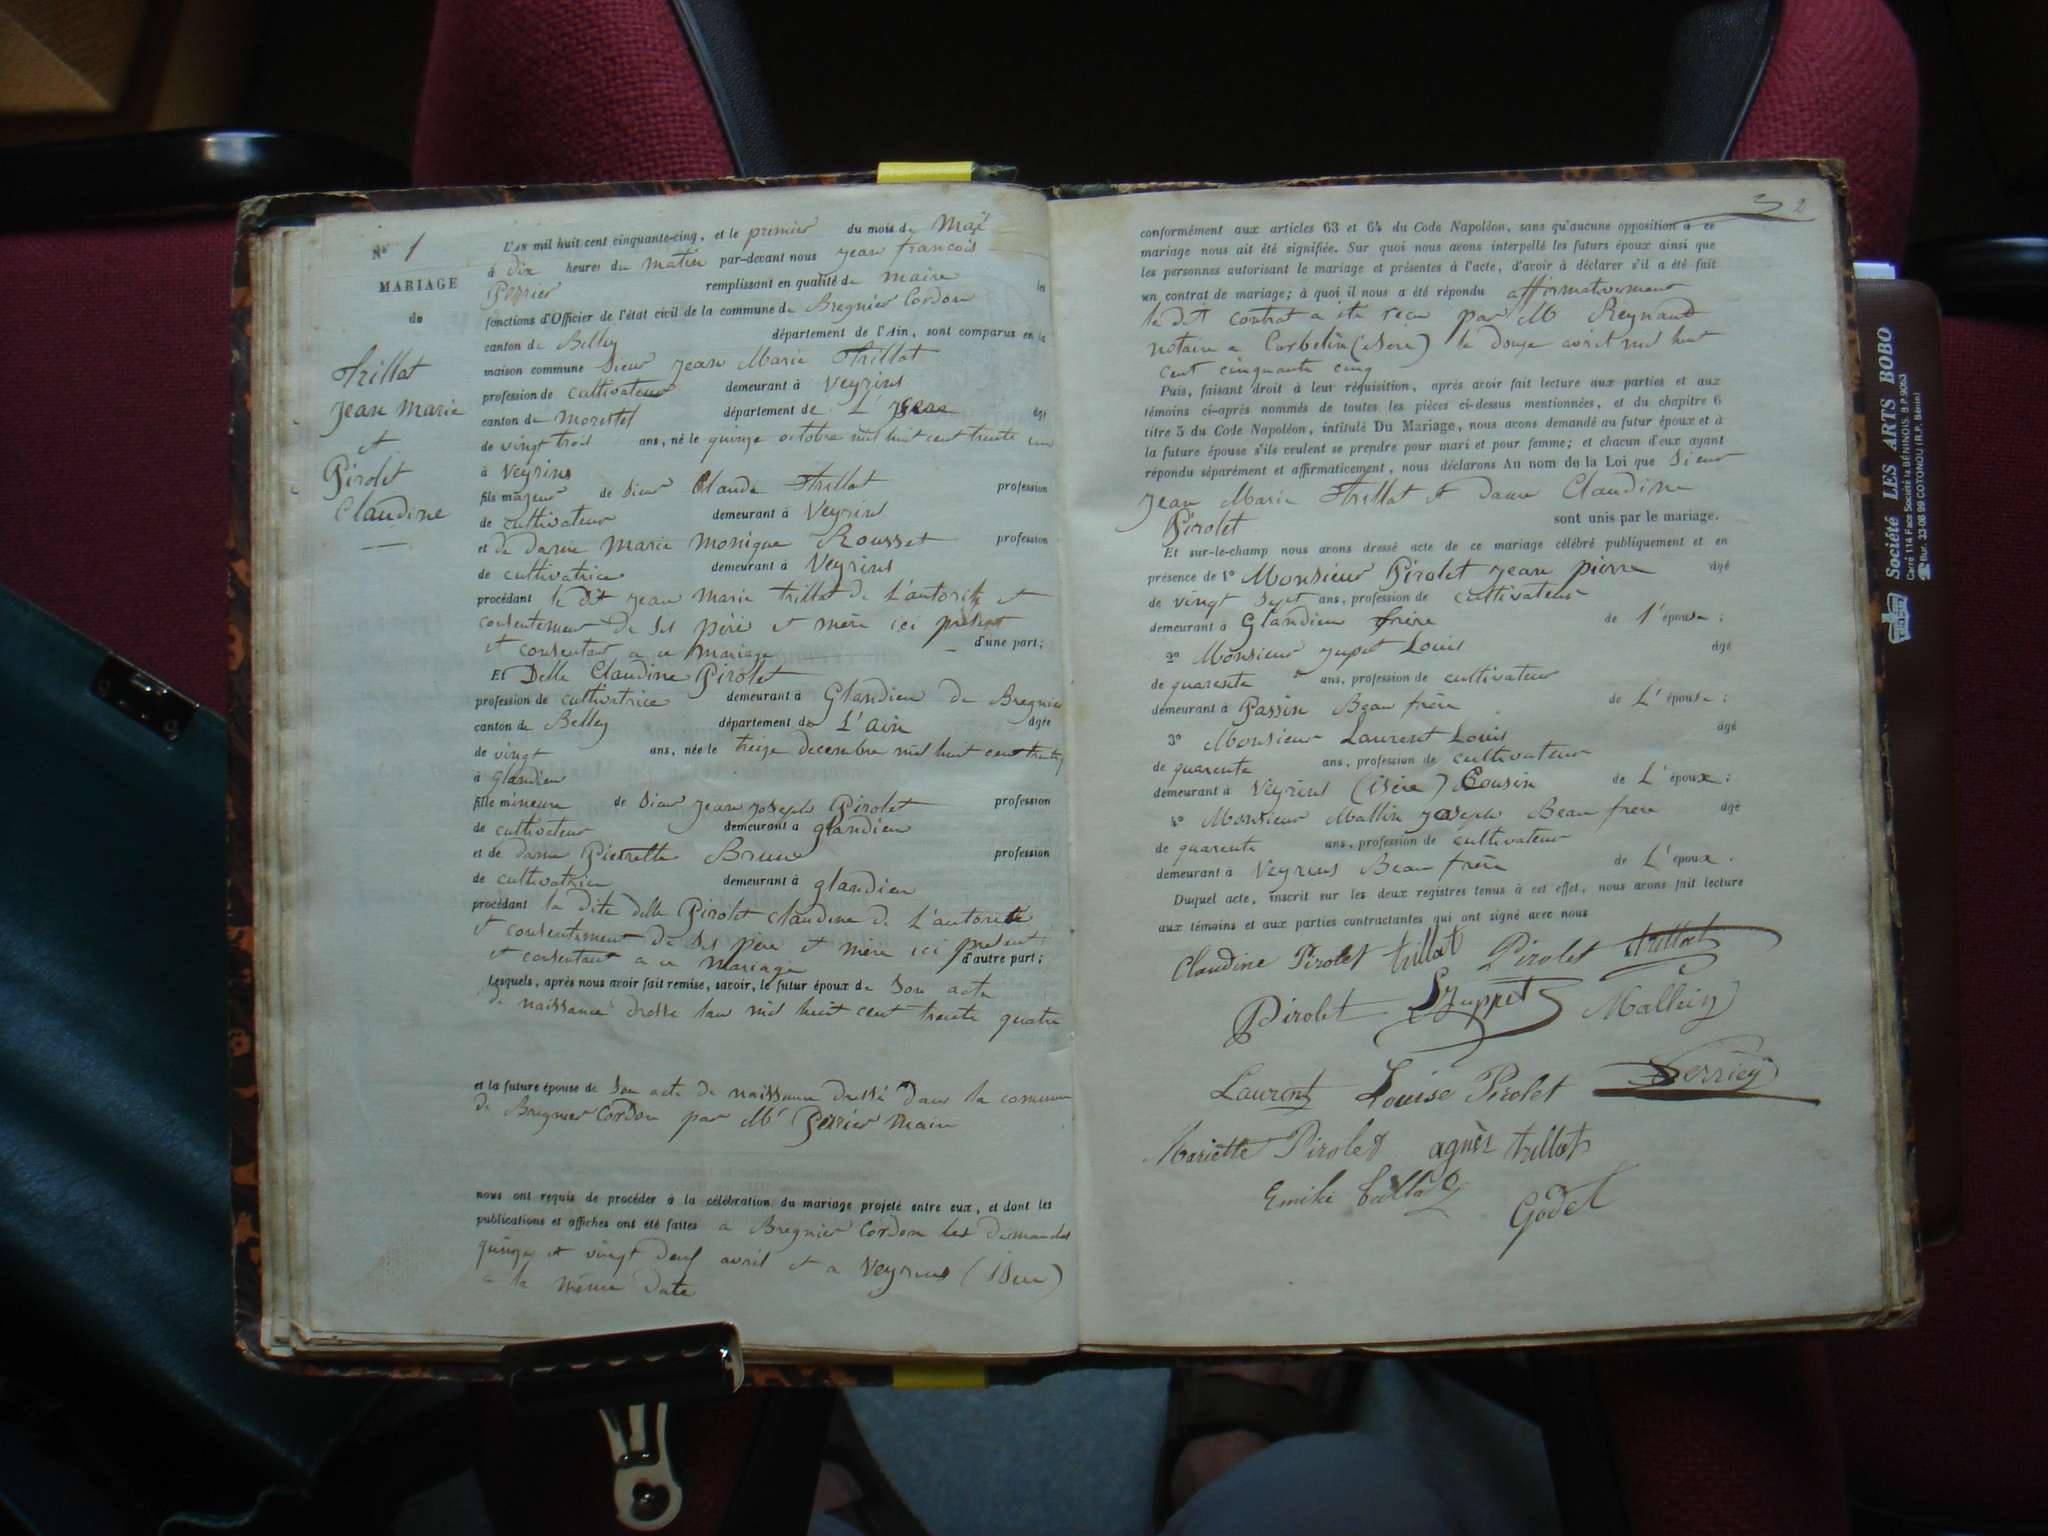 N° 1
MARIAGE
de
Trillat
Jean Marie
et
Pirolet
Claudine
L'AN mil huit cent cinquante-cinq, et le premier du mois de Maï
à dix heures du matin par-devant nous Jean francois
Perrier remplissant en qualité de maire les
fonctions d'Officier de l'état civil de la commune de Bregnier Cordon
canton de Belley département de l'Ain, sont comparus en la
maison commune Sieur Jean Marie Trillat
profession de cultivateur demeurant à Veyrins
canton de Morestel département de L'Isere âgé
de vingt trois ans, né le quinze octobre mil huit cent trente un
à Veyrins
fils majeur de Sieur Claude Trillat profession
de cultivateur demeurant à Veyrins
et de dame Marie Monique Rousset profession
de cultivatrice demeurant à Veyrins
procédant le dit Jean Marie trillat de L'autorité et
consentement de ses père et mère ici présent
et consentant a ce mariage d'une part;
ET Delle Claudine Pirolet
profession de cultivatrice demeurant à Glandieu de Bregnier
canton de Belley département de L'ain âgée
de vingt ans, née le treize decembre mil huit cent trente
à Glandieu
fille mineure de Sieur Jean Joseph Pirolet profession
de cultivateur demeurant à glandieu
et de dame Pierrette Brun profession
de cultivatrice demeurant à glandieu
procédant la dite delle Pirolet Claudine de L'autorité
et consentement de ses père et mère ici présent
et consentant a ce mariage d'autre part;
Lesquels, après nous avoir fait remise, savoir, le futur époux de Son acte
de naissance dressé l'an mil huit cent trente quatre
et la future épouse de Son acte de naissance dressé dans la commune
de Bregnier Cordon par Mr Perrier Maire
nous ont requis de procéder à la célébration du mariage projeté entre eux, et dont les
publications et affiches ont été faites a Bregnier Cordon les dimanches
quinze et vingt deux avril et a Veyrins (isere)
a la même date
2
conformément aux articles 63 et 64 du Code Napoléon, sans qu'aucune opposition à ce
mariage nous ait été signifiée. Sur quoi nous avons interpellé les futurs époux ainsi que
les personnes autorisant le mariage et présentes à l'acte, d'avoir à déclarer s'il a été fait
un contrat de mariage; à quoi il nous a été répondu affirmativement
le dit contrat a été reçu par M Reynaud
notaire a Corbelin (isere) le douze avril mil huit
cent cinquante cinq
Puis, faisant droit à leur réquisition, après avoir fait lecture aux parties et aux
témoins ci-après nommés de toutes les pièces ci-dessus mentionnées, et du chapitre 6
titre 5 du Code Napoléon, intitulé Du Mariage, nous avons demandé au futur époux et à
la future épouse s'ils veulent se prendre pour mari et pour femme; et chacun d'eux ayant
répondu séparément et affirmativement, nous déclarons Au nom de la Loi que Sieur
Jean Marie Trillat et dame Claudine
Pirolet sont unis par le mariage.
Et sur-le-champ nous avons dressé acte de ce mariage célébré publiquement et en
présence de 1° Monsieur Pirolet Jean pierre âgé
de vingt sept ans, profession de cultivateur
demeurant à Glandieu frère de l'épouse;
2° Monsieur Jupet Louis âgé
de quarente ans, profession de cultivateur
demeurant à Passin Beau frère de L'épouse;
3° Monsieur Laurent Louis âgé
de quarente ans, profession de cultivateur
demeurant à Veyrins (isère) Cousin de L'époux;
4° Monsieur Mallin Joseph Beau frere âgé
de quarente ans, profession de cultivateur
demeurant à Veyrins Beau frère de L'époux.
Duquel acte, inscrit sur les deux registres tenus à cet effet, nous avons fait lecture
aux témoins et aux parties contractantes qui ont signé avec nous
Claudine Pirolet trillat Pirolet trillat
Pirolet LJuppet Mallein
Laurent Louise Pirolet Perrier
Mariette Pirolet agnès trillat
Emilie Godet
Société LES ARTS BOBO
Carré 114 Face Société la BÉNINOIS. B.P. 9063
Bur. 33 08 99 COTONOU (R.P. Bénin)